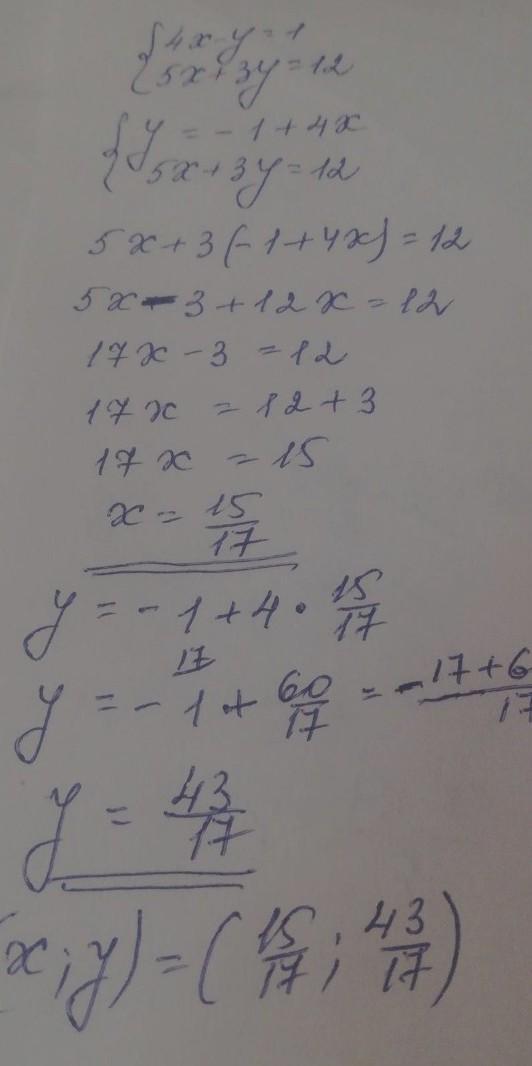 {4x-y=1
5x+3y=12
{y=-1+4x
5x+3y=12
5x+3(-1+4x)=12
5x-3+12x=12
17x-3=12
17x=12+3
17x=15
x=15/17
y=-1+4·15/17
17
y=-1+60/17=-17+6/17
y=43/17
x;y)=(15/17;43/17)